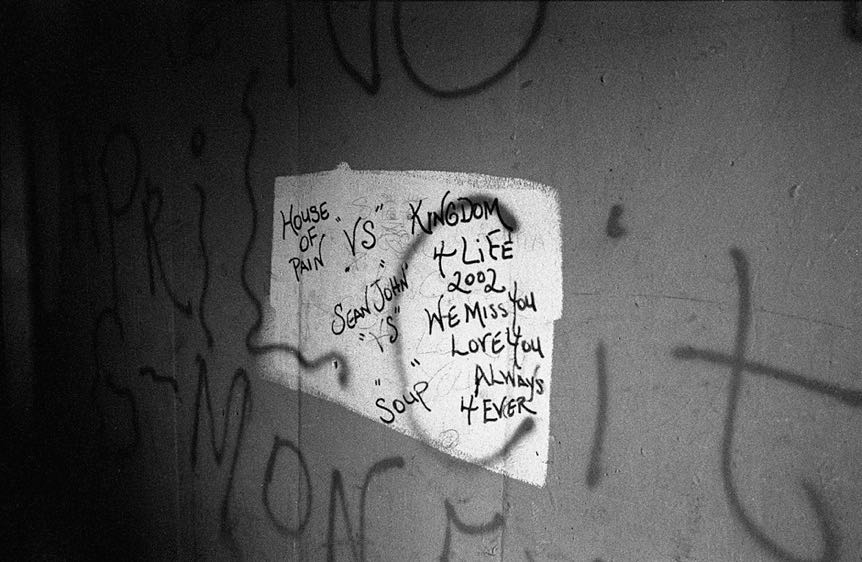 NO
HOUSE
OF
PAIN
"VS"
"SEAN JOHN"
"VS"
"SOUP"
KINGDOM
4 LiFE
2002
WE MISS YOU
LOVE YOU
ALWAYS
4 EVER
C i t
PRi
MON